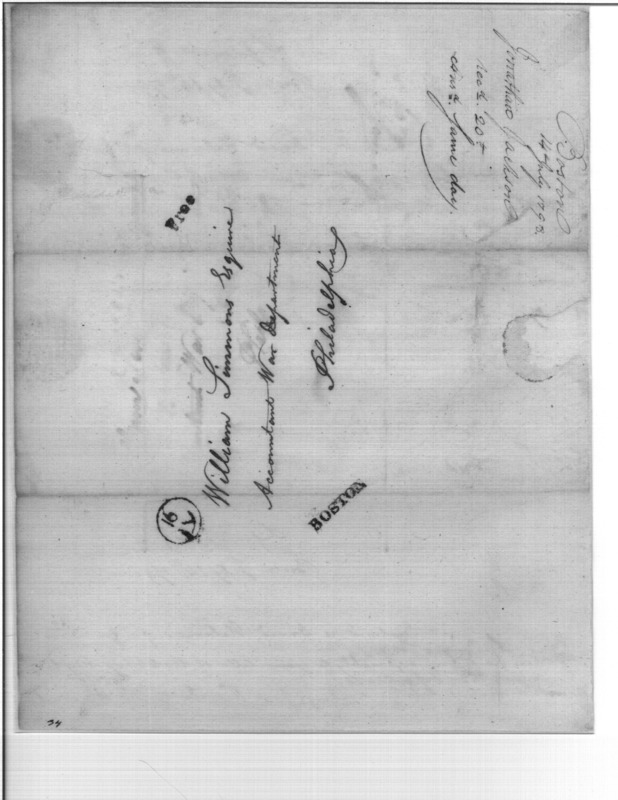 Boston
14 July 1795.
Jonathan Jackson
rec'd. 20th
ans'd. same day.
PAID
William Simmons Esquire
Accountant War Department
Philadelphia
16
IY
BOSTON
34